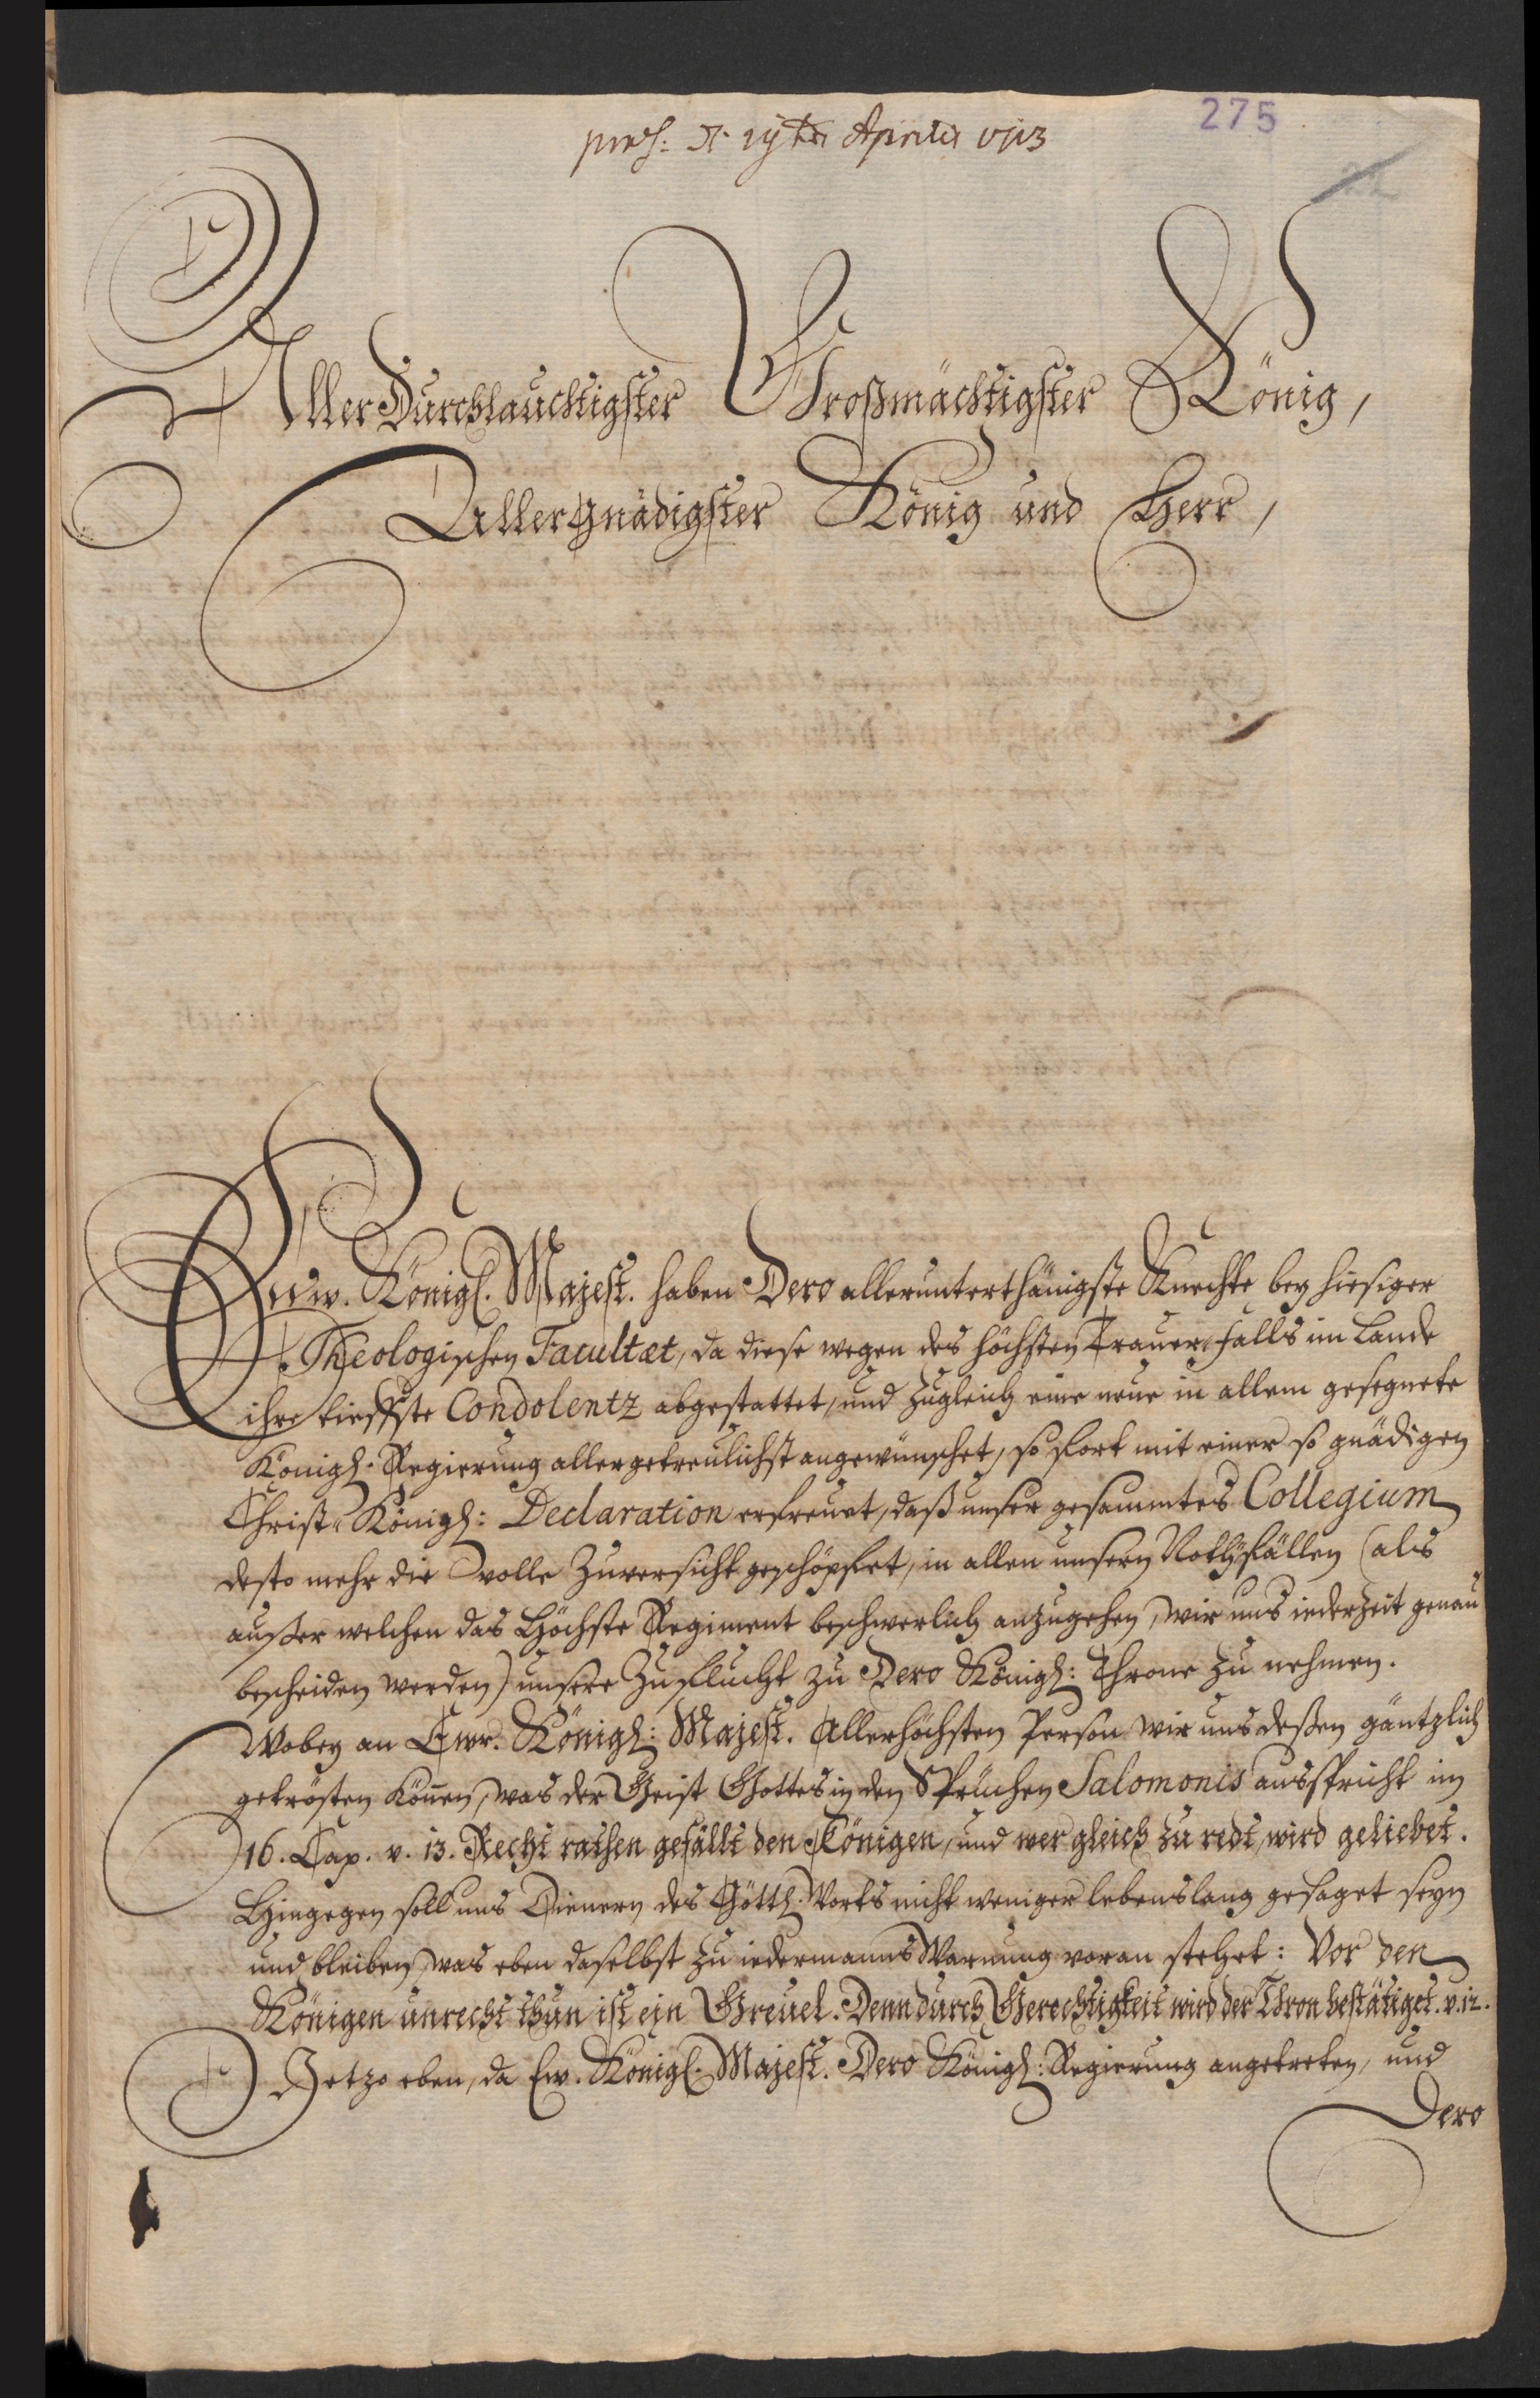 275
præs: d. 19ten Aprilis 1713
22
AllerDurchlauchtigster Großmächtigster König,
Allergnädigster König und Herr,
Euw. Königl. Majest. haben Dero allerunterthänigste Knechte bey hiesiger
Theologischen Facultæt, da diese wegen des höchsten Trauer-falls im Lande
ihre tieffste Condolentz abgestattet, und zugleich eine neue in allem gesegnete
Königl. Regierung allergetreulichst angewünschet, so fort mit einer so gnädigen
Christ-Königl: Declaration erfreuet, daß unser gesammtes Collegium
desto mehr die volle Zuversicht geschöpffet, in allen unsern Nothfällen (als
außer welchen das Höchste Regiment beschwerlich anzugehen, wir uns iederzeit genau
bescheiden werden) unsere Zuflucht zu Dero Königl: Throne zu nehmen.
Wobey an Ewr. Königl: Majest. Allerhöchsten Person wir uns deßen gäntzlich
getrösten können, was der Geist Gottes in den Sprüchen Salomonis ausspricht im
16. Cap. v. 13. Recht rathen gefällt den Königen, und wer gleich zu redt, wird geliebet.
Hingegen soll uns Dienern des Göttl. Worts nicht weniger lebenslang gesaget seyn
und bleiben, was eben daselbst zu iedermanns Warnung voran stehet: Vor den
Königen unrecht thun ist ein Greuel. Denn durch Gerechtigkeit wird der Thron bestätiget. v. 12.
Jetzo eben, da Ew. Königl. Majest. Dero Königl: Regierung angetreten, und
Dero